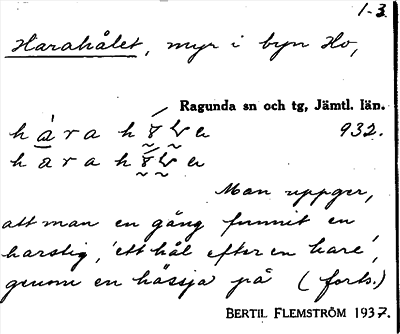 1-3.
Harahålet, myr i byn Ho,
Ragunda sn och tg, Jämtl. län.
932.
Man uppger,
att man en gång funnit en
harstig, 'ett hål efter en hare',
genom en hässja på (forts.)
BERTIL FLEMSTRÖM 1937.